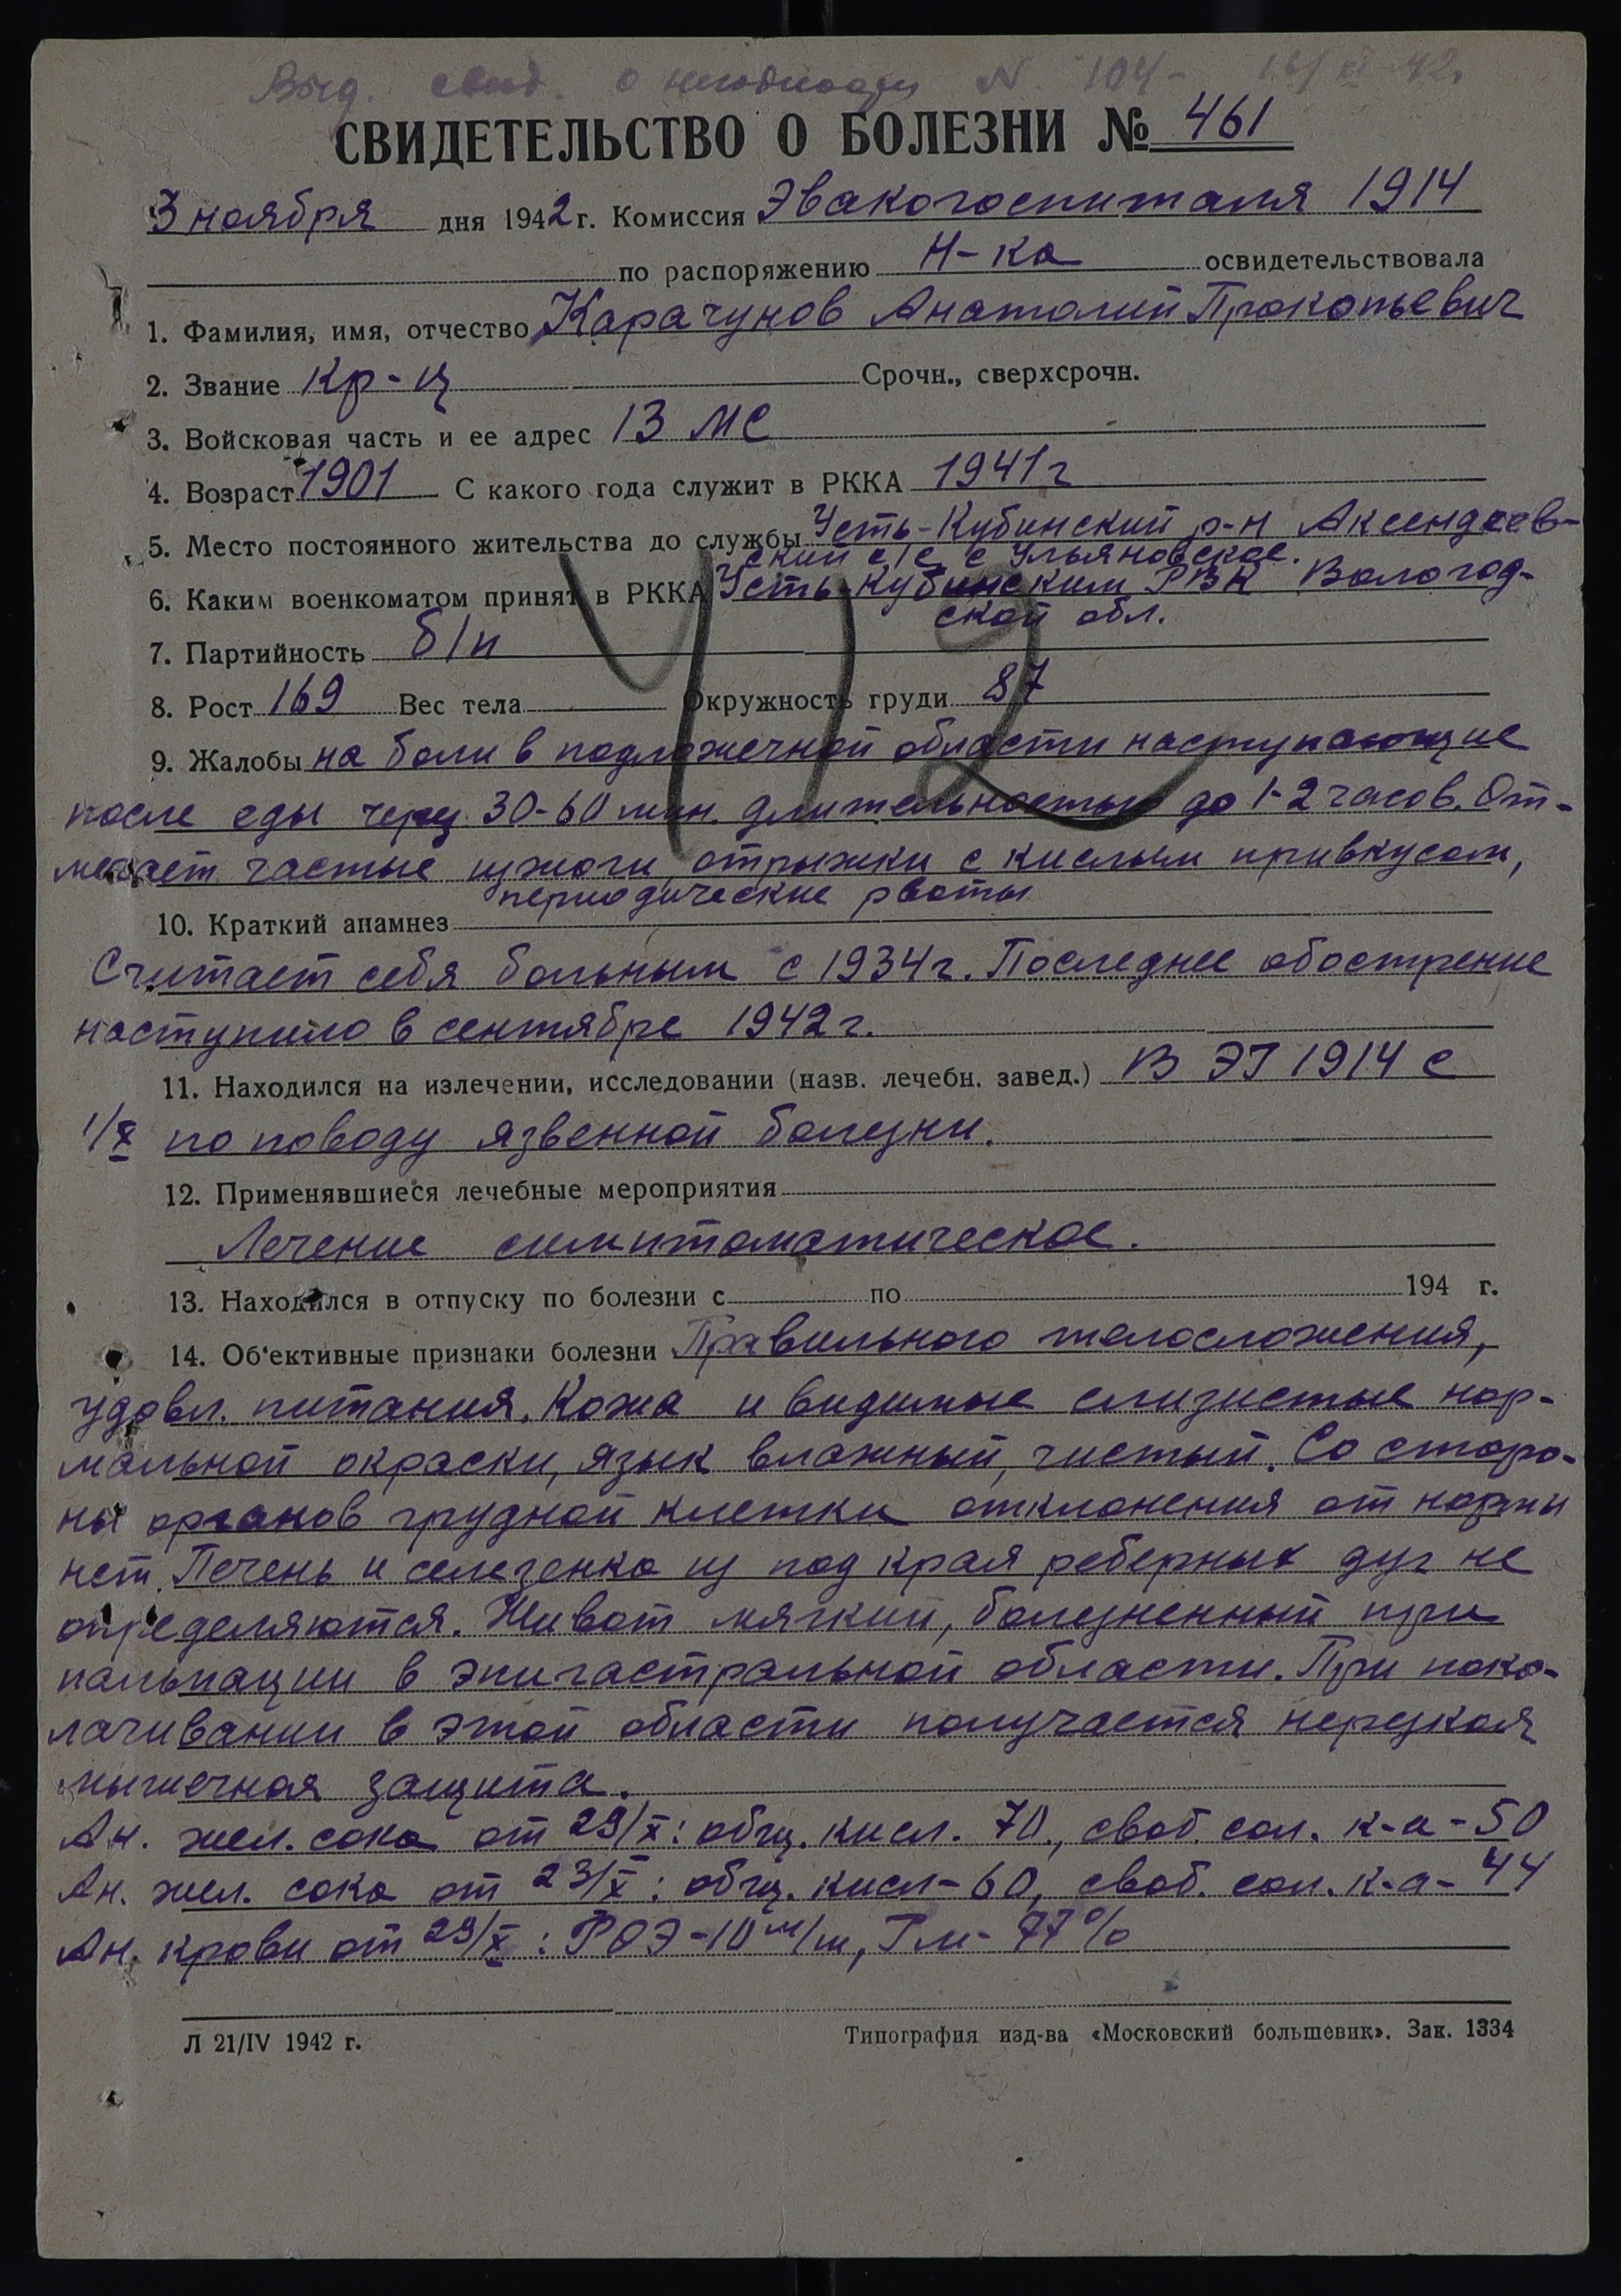 Выд. свид. о негодности N 104 - 16/XI 42.
СВИДЕТЕЛЬСТВО О БОЛЕЗНИ № 461
3 ноября дня 1942 г. Комиссия Эвакогоспиталя 1914
по распоряжению Н-ка освидетельствовала
1. Фамилия, имя, отчество Карачунов Анатолий Прокопьевич
2. Звание Кр-ц Срочн., сверхсрочн.
3. Войсковая часть и ее адрес 13 МС
4. Возраст 1901 С какого года служит в РККА 1941 г
5. Место постоянного жительства до службы Усть-Кубинский р-н
ский с/с с Ульяновское.
6. Каким военкоматом принят в РККА Усть-Кубинским РВК Вологод-
ской обл.
7. Партийность б/п
8. Рост 169 Вес тела Окружность груди 87
412
9. Жалобы на боли в подложечной области наступающие
после еды через 30-60 мин. длительностью до 1-2 часов. От-
мечает частые изжоги, отрыжки с кислым привкусом,
периодические рвоты
10. Краткий анамнез
Считает себя больным с 1934 г. Последнее обострение
наступило в сентябре 1942 г.
11. Находился на излечении, исследовании (назв. лечебн. завед.) В ЭГ 1914 с
1/X по поводу язвенной болезни.
12. Применявшиеся лечебные мероприятия
Лечение симптоматическое.
13. Находился в отпуску по болезни с по 194 г.
14. Об'ективные признаки болезни Правильного телосложения,
удовл. питания. Кожа и видимые слизистые нор-
мальной окраски, язык влажный, чистый. Со сторо-
ны органов грудной клетки отклонения от нормы
нет. Печень и селезенка из под края реберных дуг не
определяются. Живот мягкий, болезненный при
пальпации в эпигастральной области. При поко-
лачивании в этой области получается нерезкая
мышечная защита.
Ан. жел. сока от 29/X: общ. кисл. 70, своб. сол. к-а - 50
Ан. жел. сока от 23/X: общ. кисл - 60, своб. сол. к-а - 44
Ан. крови от 29/X: РОЭ - 10 м/м, Гм - 77%
Л 21/IV 1942 г.
Типография изд-ва «Московский большевик». Зак. 1334